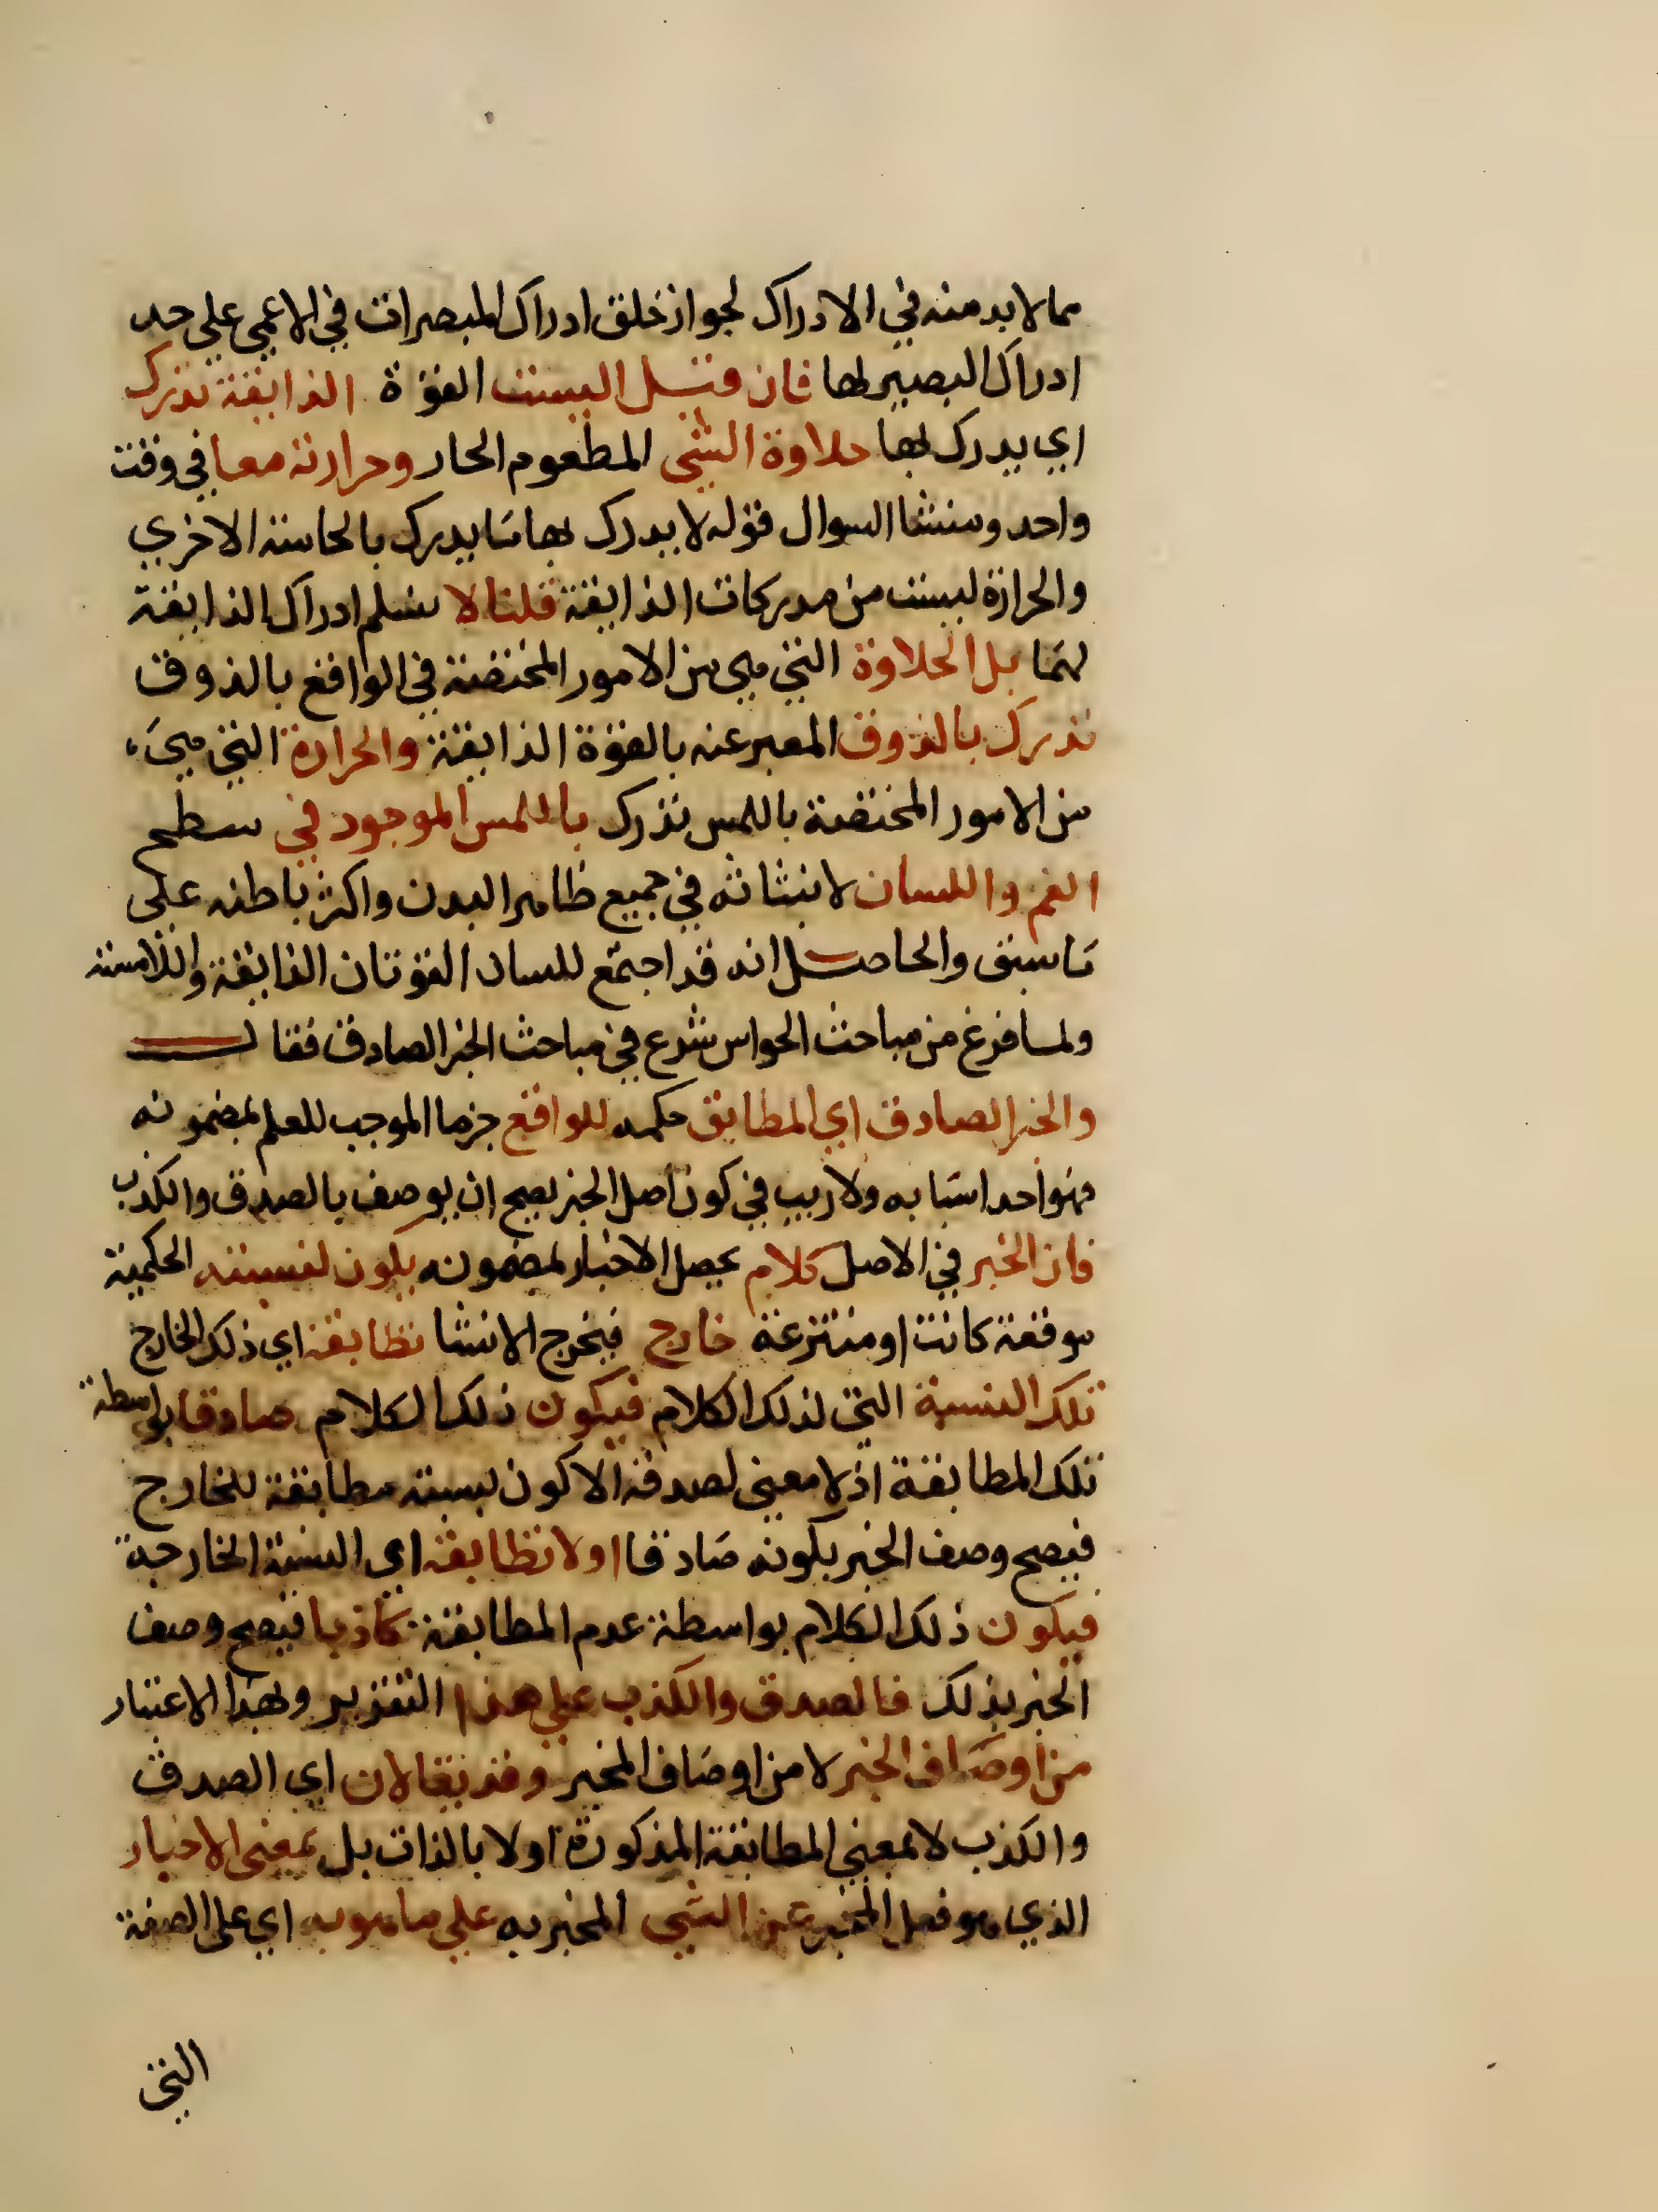 مما لا بد منه في الادراك لجواز خلق ادراك المبصرات في الاعمي علي حد
ادراك البصير لها فان قيل اليست القوة الذايقة تدرك
اي يدرك بها حلاوة الشي المطعوم الحار وحرارته معا في وقت
واحد ومنشا السوال قوله لا يدرك بها ما يدرك بالحاسة الاخري
والحرارة ليست من مدركات الذايقة قلنا لا نسلم ادراك الذايقة
لهما بل الحلاوة التي هي من الامور المختصة في الواقع بالذوق
تدرك بالذوق المعبر عنه بالقوة الذايقة والحرارة التي هي
من الامور المختصة باللمس تدرك باللمس الموجود في سطح
الفم واللسان لانبثاثه في جميع ظاهر البدن واكثر باطنه علي
ما سبق والحاصل انه قد اجتمع للسان القوتان الذايقة واللامسة
ولما فرغ من مباحث الحواس شرع في مباحث الخبر الصادق فقال
والخبر الصادق اي المطابق حكمه للواقع جزما الموجب للعلم بمضمونه
فهو احد اسبابه ولا ريب في كون اصل الخبر يصح ان يوصف بالصدق والكذب
فان الخبر في الاصل كلام يحصل الاخبار بمضمونه يكون لنسبته الحكمية
موقعة كانت او منتزعة خارج فيخرج الانشا تطابقه اي ذلك الخارج
تلك النسبة التي لذلك الكلام فيكون ذلك الكلام صادقا بواسطة
تلك المطابقة اذ لا معني لصدقه الا كون نسبته مطابقة للخارج
فيصح وصف الخبر بكونه صادقا او لا تطابقه اي النسبة الخارجة
فيكون ذلك الكلام بواسطة عدم المطابقة كاذبا فيصح وصف
الخبر بذلك فالصدق والكذب علي هذا التقدير وبهذا الاعتبار
من اوصاف الخبر لا من اوصاف المخبر وقد يقالان اي الصدق
والكذب لا بمعني المطابقة المذكورة اولا بالذات بل بمعني الاخبار
الذي هو فعل المخبر عن الشي المخبر به علي ما هو به اي علي الصفة
التي